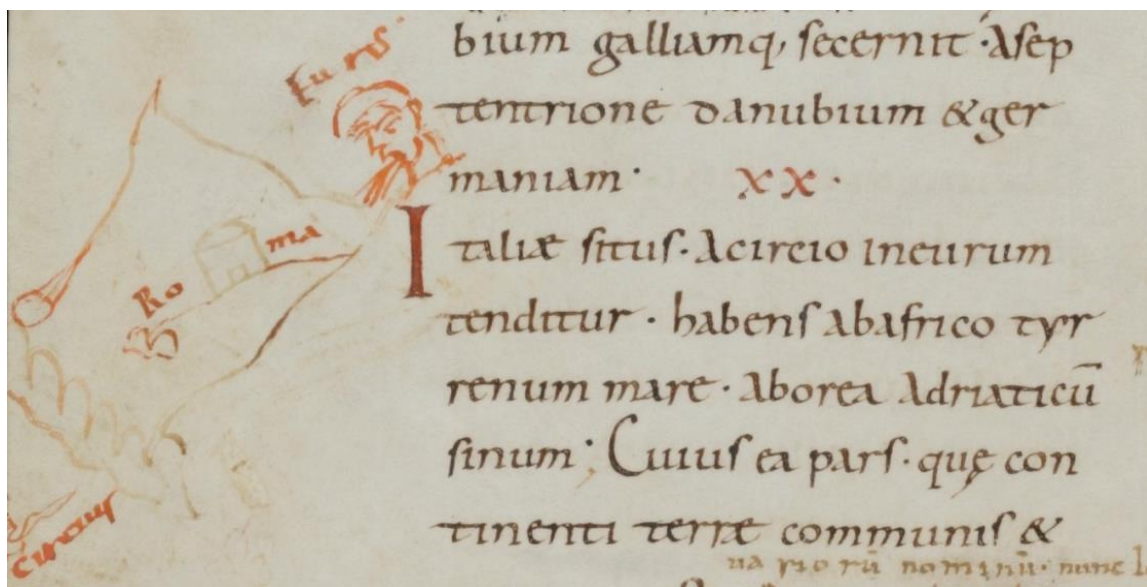 bium galliamq, secernit · Asep
tentrione danubium & ger
maniam · xx ·
Italiæ situs · Acircio ineurum
tenditur · habens abafrico tyr
renum mare · aborea Adriaticū
sinum · Cuius ea pars · quę con
tinenti terræ communis &
uariorū nominū · nunc
Eurus
Ro
ma
Circius